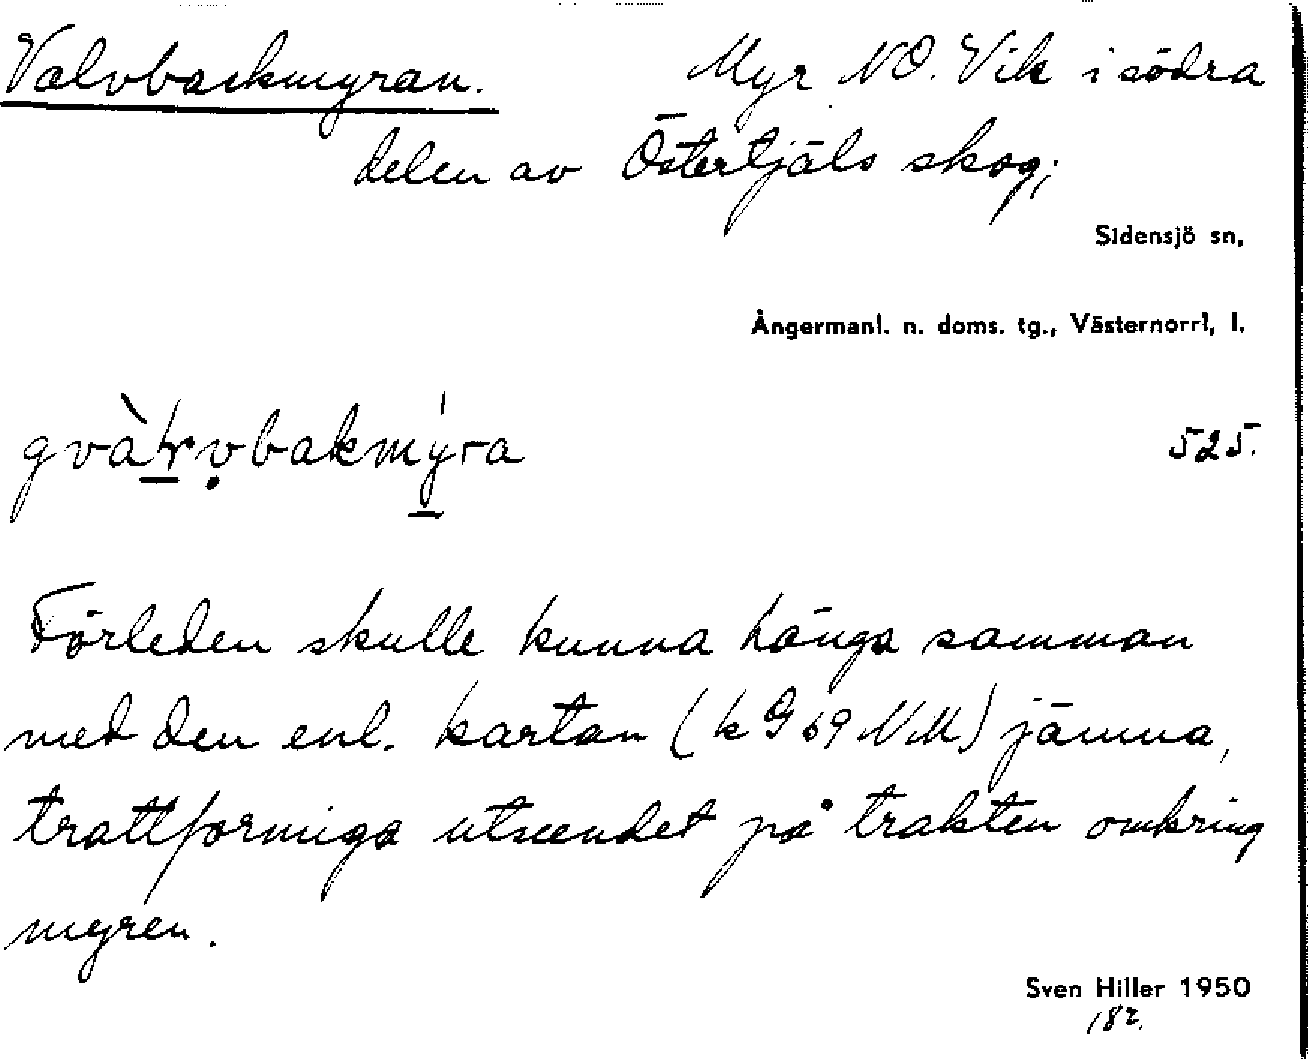 Valvbackmyran. Myr NO. Vik i södra
delen av Östertjäls skog;
Sidensjö sn,
Ångermanl. n. doms. tg., Västernorrl, l.
525.
Förleden skulle kunna hänga samman
med den enl. kartan (k G 69 NM) jämna,
trattformiga utseendet på trakten omkring
myren.
Sven Hiller 1950
182.